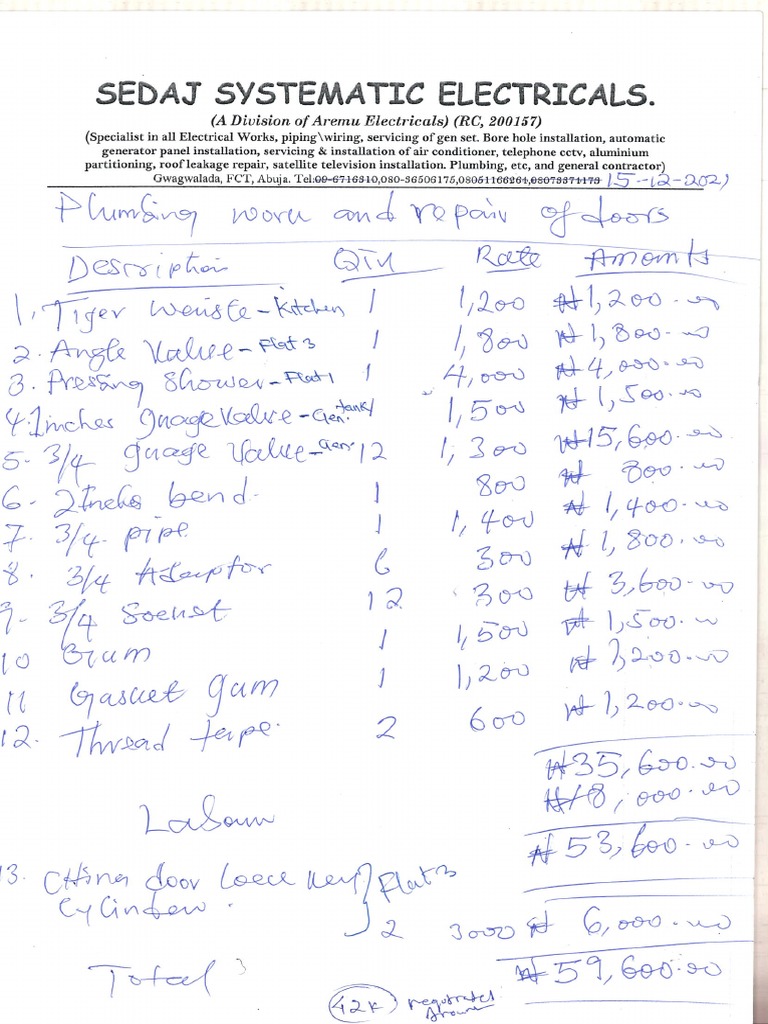 SEDAJ SYSTEMATIC ELECTRICALS.
(A Division of Aremu Electricals) (RC, 200157)
(Specialist in all Electrical Works, piping\wiring, servicing of gen set. Bore hole installation, automatic
generator panel installation, servicing & installation of air conditioner, telephone cctv, aluminium
partitioning, roof leakage repair, satellite television installation. Plumbing, etc, and general contractor)
Gwagwalada, FCT, Abuja. Tel:09-6716310,080-36506175,08051166264,08073371173 15-12-2021
Plumbing work and repair of doors
Description QTY Rate Amounts
1. Tiger - Kitchen 1 1,200 ₦1,200.00
2. Angle Valve - Flat 3 1 1,800 ₦1,800.00
3. Pressing Shower - Flat 1 1 4,000 ₦4,000.00
4. 1 inches guage Valve - Gen. tank 1 1,500 ₦1,500.00
5. 3/4 guage Valve - Gen. 12 1,300 ₦15,600.00
6. 2 Inches bend. 1 800 ₦ 800.00
7. 3/4. pipe 1 1,400 ₦1,400.00
8. 3/4 Adaptor 6 300 ₦1,800.00
9. 3/4 Socket 12 300 ₦ 3,600.00
10 Gum 1 1,500 ₦1,500.00
11 Gasket gum 1 1,200 ₦1,200.00
12. Thread tape. 2 600 ₦1,200.00
₦35,600.00
₦18,000.00
Labour
₦53,600.00
13. China door Lock key Flat 3
Cylinder. 2 3000 ₦ 6,000.00
Total ₦59,600.00
42K negotiated